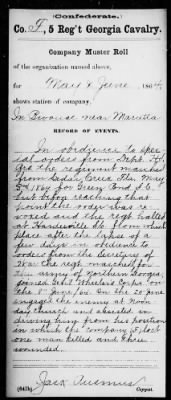 (Confederate.)
Co. F, 5 Reg't Georgia Cavalry.
Company Muster Roll
of the organization named above,
for May & June, 1864,
shows station of company,
In Bivouac near Marietta
RECORD OF EVENTS.
In obedience to spe-
cial orders from Dept. Hd.
Qrs the regiment marched
from Cedar Creek Fla. May
for Green Pond S.C.
but before reaching that
point the order was re-
voked and the regt halted
at
place after the lapse of a
few days in obedience to
orders from the Secretary of
War the regt marched for
the army of Northern Georgia,
joined Genl Wheeler's Corps on
the 8" June 64. On the 20 June
engaged the enemy at Noon
day church and assisted in
driving him from his position
in which the company F, lost
one man killed and three
wounded.
Jack Ausmus
Copyist.